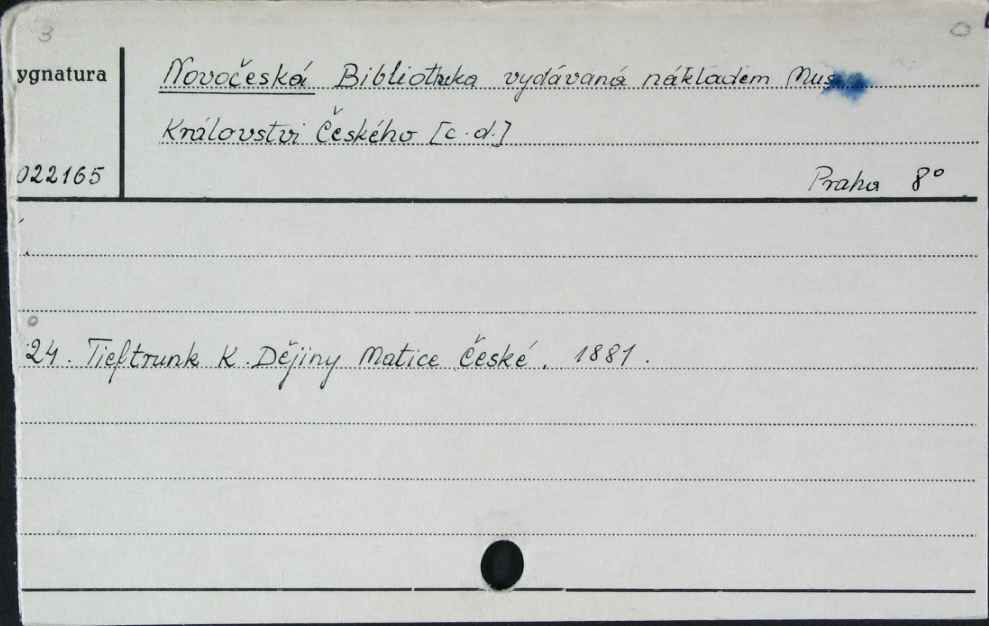 3 0
ygnatura Novočeská Bibliotheka vydávaná nákladem Mus
Království Českého [c.d.]
022165 Praha 8°
24. Tieftrunk K. Dějiny Matice České. 1881.